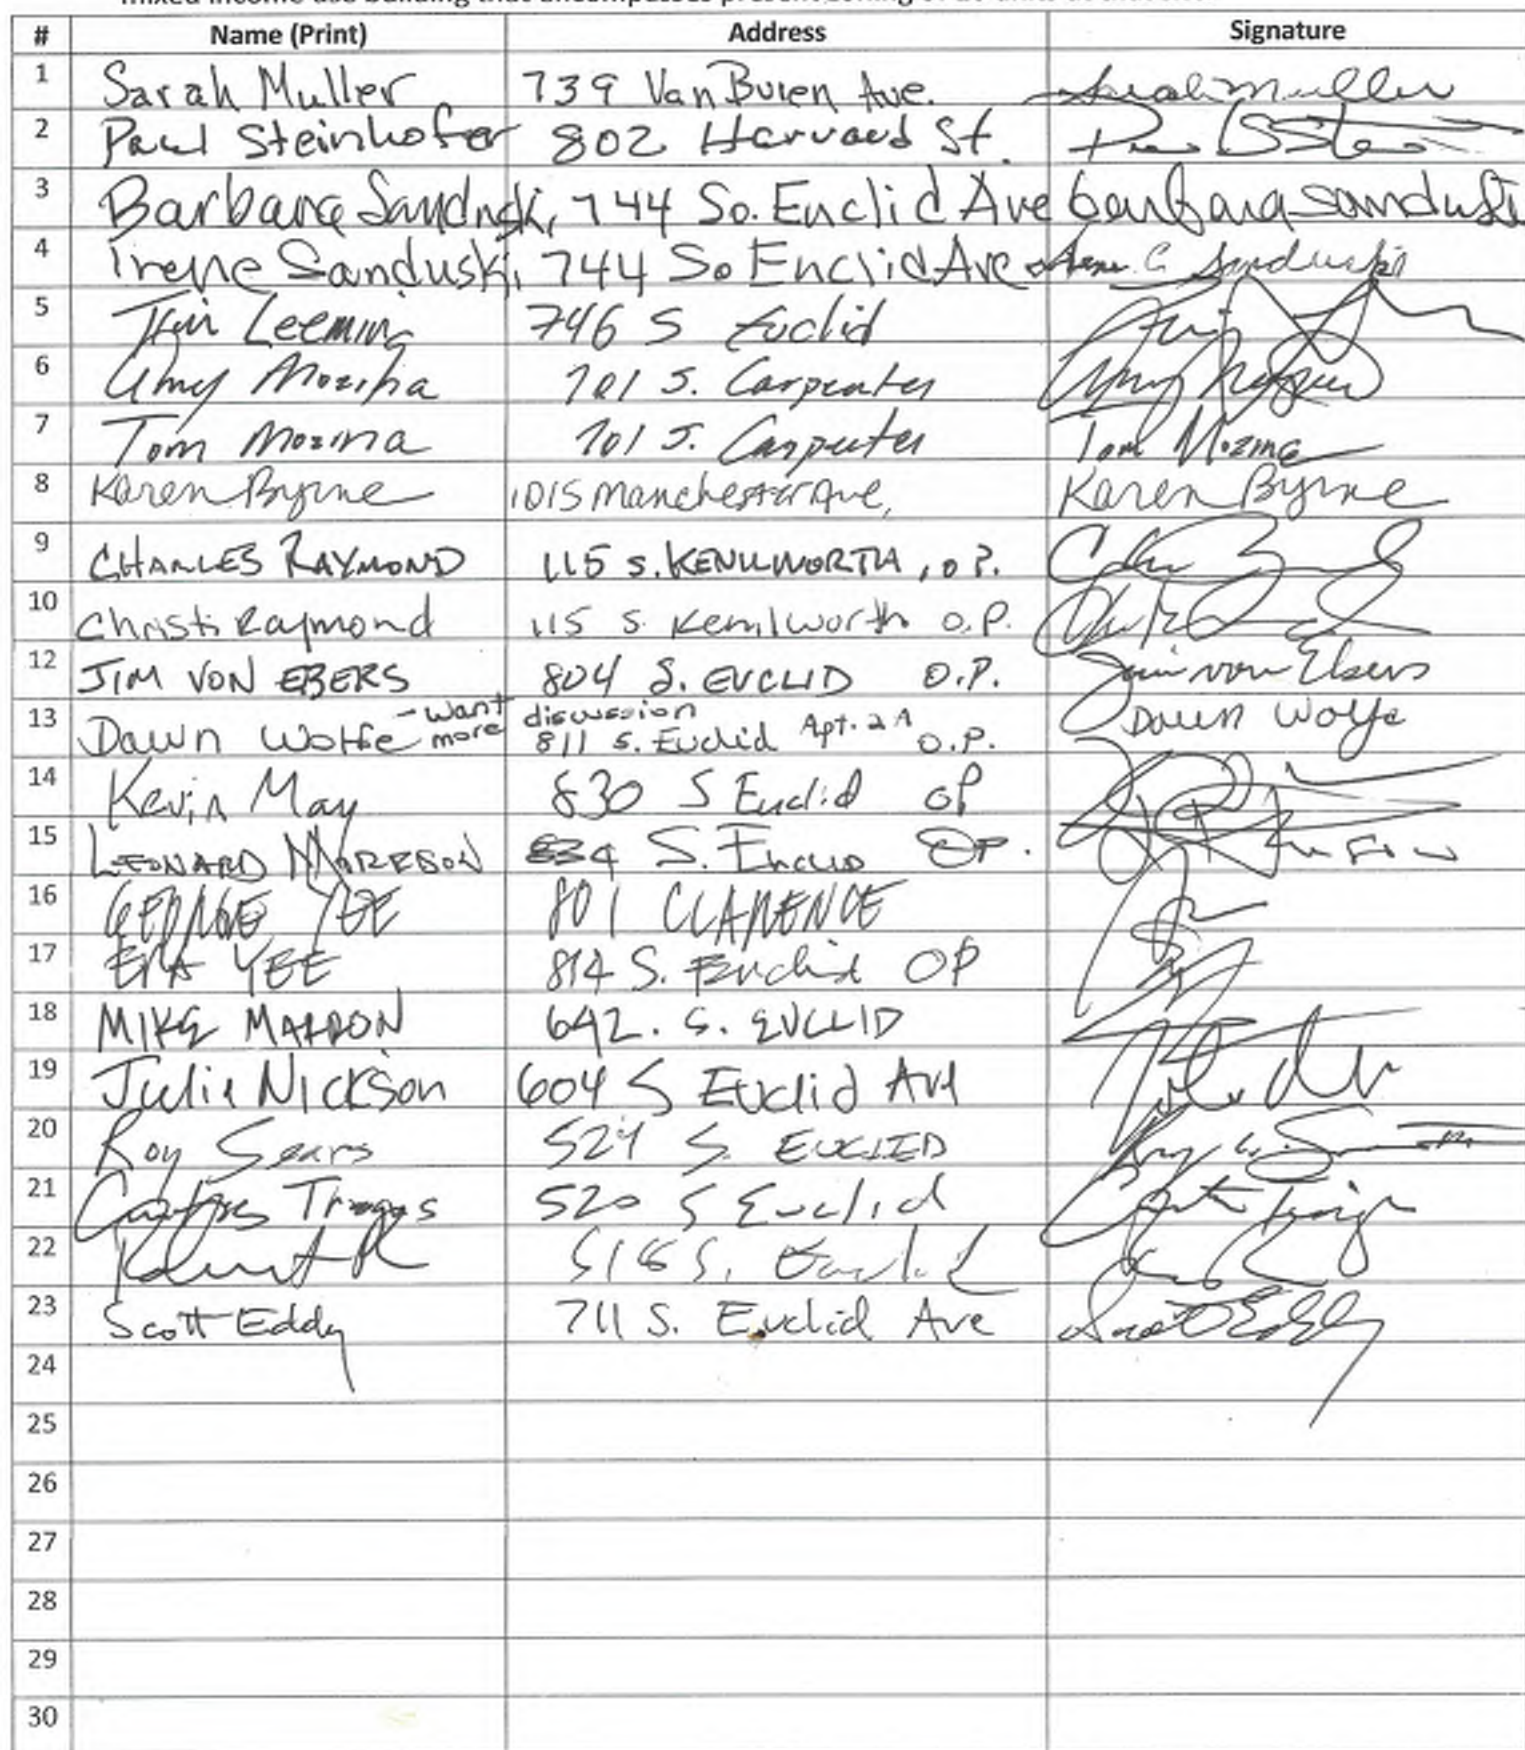 mixed income use building that encompasses present zoning of
# Name (Print) Address Signature
1 Sarah Muller 739 Van Buren Ave. Sarah Muller
2 Paul Steinhofer 802 Harvard St.
3 Barbara Sanduski, 744 So. Euclid Ave barbara sanduski
4 Irene Sanduski, 744 So Euclid Ave Irene C Sanduski
5 Leeming 746 S Euclid
6 Amy Mozina 701 S. Carpenter Amy
7 Tom Mozina 701 S. Carpenter Tom Mozina
8 Karen Byrne 1015 Manchester Ave, Karen Byrne
9 CHARLES RAYMOND 115 S. KENILWORTH, O.P.
10 Christi Raymond 115 S. Kenilworth O.P.
12 JIM VON EBERS 804 S. EUCLID O.P. Jim von Ebers
13 Dawn Wolfe - want more discussion 811 S. Euclid Apt. 2A O.P. Dawn Wolfe
14 Kevin May 830 S Euclid OP
15 LEONARD S. EUCLID OP.
16 GEORGE YEE 801 CLARENCE
17 YEE 814 S. Euclid OP
18 MIKE 642. S. EUCLID
19 Julie Nickson 604 S Euclid Ave
20 Roy Sears 524 S. EUCLIED
21 520 S Euclid
22 Robert R 516 S. Euclid
23 Scott Eddy 711 S. Euclid Ave Scott Eddy
24
25
26
27
28
29
30